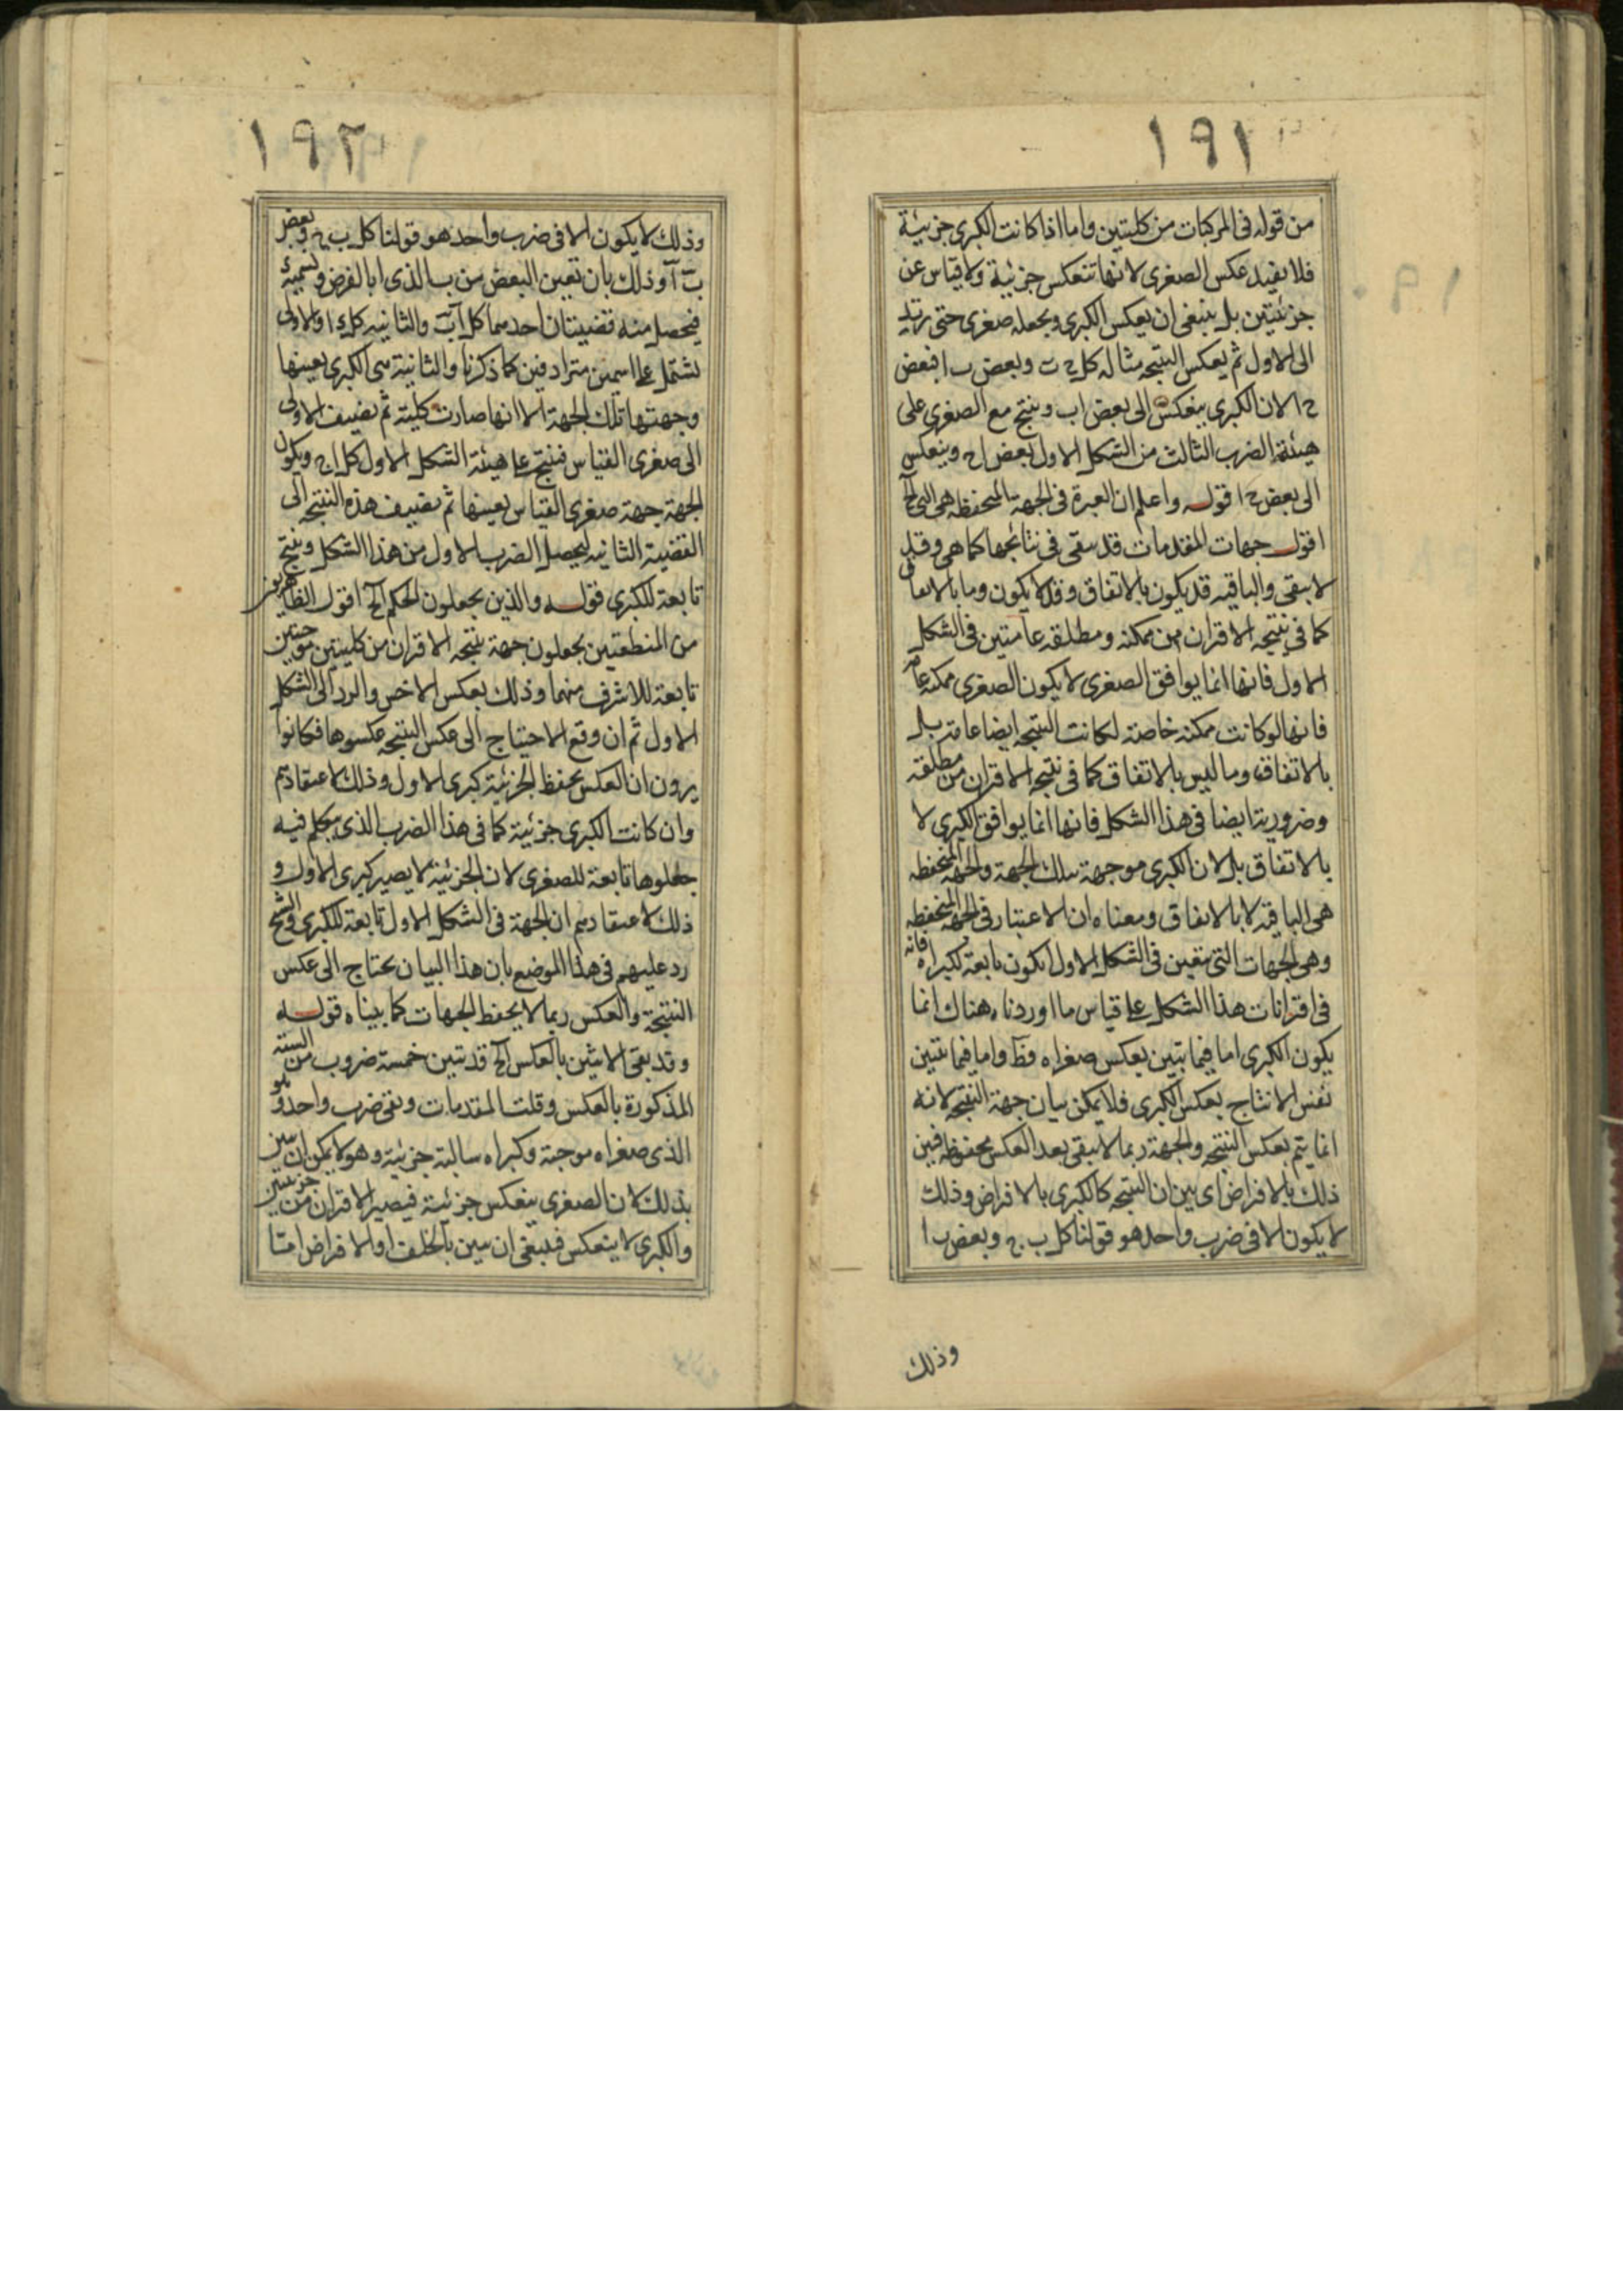 ١٩١
من قوله فى المركبات من كليتين واما اذا كانت الكبرى جزئية
فلا يفيد عكس الصغرى لانها تنعكس جزئية ولا قياس عن
جزئيتين بل ينبغى ان يعكس الكبرى ويجعله صغرى حتى يرتد
الى الاول ثم يعكس النتيجه مثاله كل ب وبعض ب ا فبعض
ج ا لان الكبرى ينعكس الى بعض ا ب وينتج مع الصغرى على
هيئة الضرب الثالث من الشكل الاول بعض ا ج وينعكس
الى بعض ج ا قوله واعلم ان العبرة فى الجهة المنحفظه هى التى الخ
اقول جهات المقدمات قد يبقى فى نتائجها كما هى وقد
لا يبقى والباقيه قد يكون بالاتفاق وقد لا يكون وما بالاتفاق
كما فى نتيجه الاقتران من ممكنه ومطلقه عامتين فى الشكل
الاول فانها انما يوافق الصغرى لا يكون الصغرى ممكنه عامة
فانها لو كانت ممكنه خاصة لكانت النتيجه ايضا عامة بل
بالاتفاق وما ليس بالاتفاق كما فى نتيجه الاقتران من مطلقه
وضرورية ايضا فى هذا الشكل فانها انما يوافق الكبرى لا
بالاتفاق بل لان الكبرى موجهة بتلك الجهة والجهه المنحفظه
هى الباقيه لا بالاتفاق ومعناه ان الاعتبار فى الجهه المنحفظه
وهى الجهات التى يتعين فى الشكل الاول بكون تابعة لكبراه فانه
فى اقترانات هذا الشكل على قياس ما اوردناه هناك انما
يكون الكبرى اما فيما يتبين بعكس صغراه فظ واما فيما يتبين
نفس الانتاج بعكس الكبرى فلا يمكن بيان جهة النتيجه لانه
انما يتم بعكس النتيجه والجهة ربما لا يبقى بعد العكس محفوظه فبين
ذلك بالافتراض اى بين ان النتيجه كالكبرى بالافتراض وذلك
لا يكون الا فى ضرب واحد هو قولنا كل ب ج وبعض ب ا
وذلك
١٩٢
وذلك لا يكون الا فى ضرب واحد هو قولنا كل ب ج وبعض
ب آ وذلك بان نعين البعض من ب الذى ا بالفرض ونسميه
فيحصل منه قضيتان احدهما كل ب والثانيه كل ا والاولى
يشتمل على اسمين مترادفين كما ذكرنا والثانية هى الكبرى بعينها
وجهتها تلك الجهة الا انها صارت كلية ثم يضيف الاولى
الى صغرى القياس فينتج على هيئة الشكل الاول كل ج ويكون
الجهة جهة صغرى القياس بعينها ثم يضيف هذه النتيجه الى
القضية الثانيه ليحصل الضرب الاول من هذا الشكل وينتج
تابعة للكبرى قوله والذين يجعلون الحكم الخ اقول الظاهريون
من المنطقيين يجعلون جهة نتيجه الاقتران من كليتين موجبتين
تابعة للاشرف منهما وذلك بعكس الاخس والرد الى الشكل
الاول ثم ان وقع الاحتياج الى عكس النتيجه عكسوها فكانوا
يرون ان العكس يحفظ الجزئية كبرى الاول وذلك لاعتقادهم
وان كانت الكبرى جزئية كما فى هذا الضرب الذى يتكلم فيه
جعلوها تابعة للصغرى لان الجزئية لا يصير كبرى الاول و
ذلك لاعتقادهم ان الجهة فى الشكل الاول تابعة للكبرى والشيخ
رد عليهم فى هذا الموضع بان هذا البيان يحتاج الى عكس
النتيجة والعكس ربما لا يحفظ الجهات كما بيناه قوله
وقد بقى الاثنين بالعكس الخ قد تبين خمسة ضروب من الستة
المذكورة بالعكس وقلت المقدمات وبقى ضرب واحد وهو
الذى صغراه موجبة وكبراه سالبة جزئية وهو لا يمكن ان يبين
بذلك لان الصغرى ينعكس جزئية فيصير الاقتران من جزئيتين
والكبرى لا ينعكس فينبغى ان يبين بالخلف او الافتراض امتا